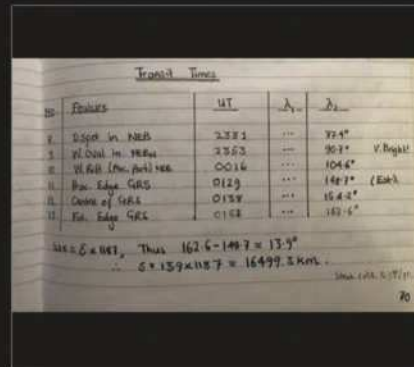 Transit Times
No Features UT λ₁ λ₂
8. D.Spot in NEB 2331 ... 77.4°
9. W.Oval in NEBn 2353 ... 90.7° V.Bright!
10. W.Rift (Prec. Part) NEB 0016 ... 104.6°
11. Prec. Edge GRS 0129 ... 148.7° (Est).
12. Centre of GRS 0138 ... 154.2°
13. Fol. Edge GRS 0152 ... 162.6°
Thus 162.6-148.7 = 13.9°
∴ S = 13.9x1187 = 16499.3 Km.
70